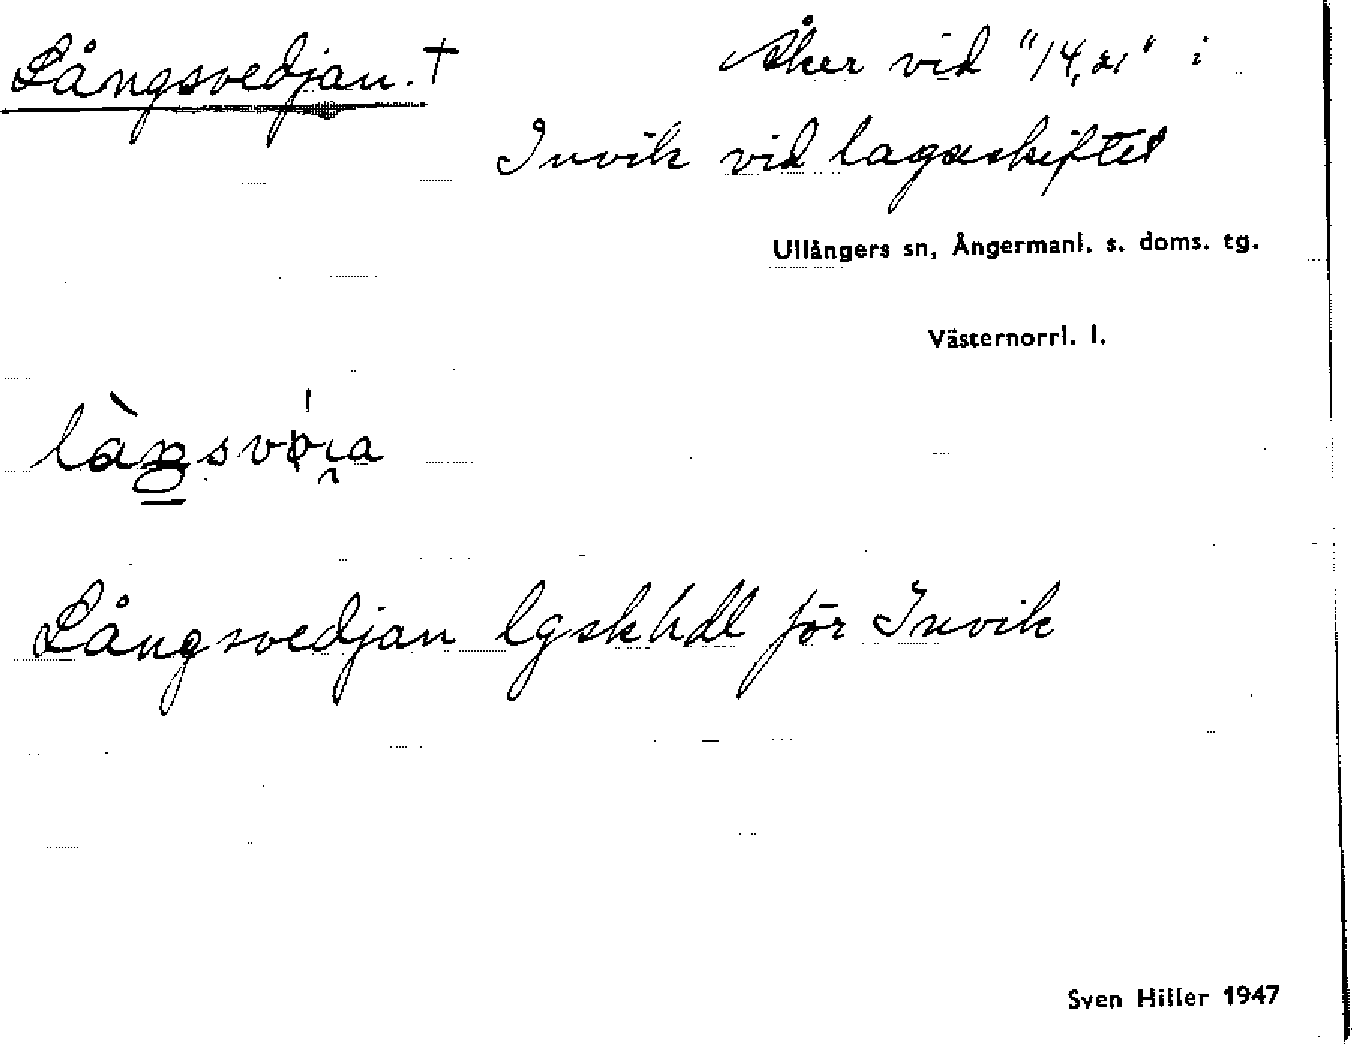 Långsvedjan. †
Åker vid "14, a1" i
Invik vid lagaskiftet
Ullångers sn, Ångermanl. s. doms. tg.
Västernorrl. l.
Långsvedjan lgskhdl för Invik
Sven Hiller 1947